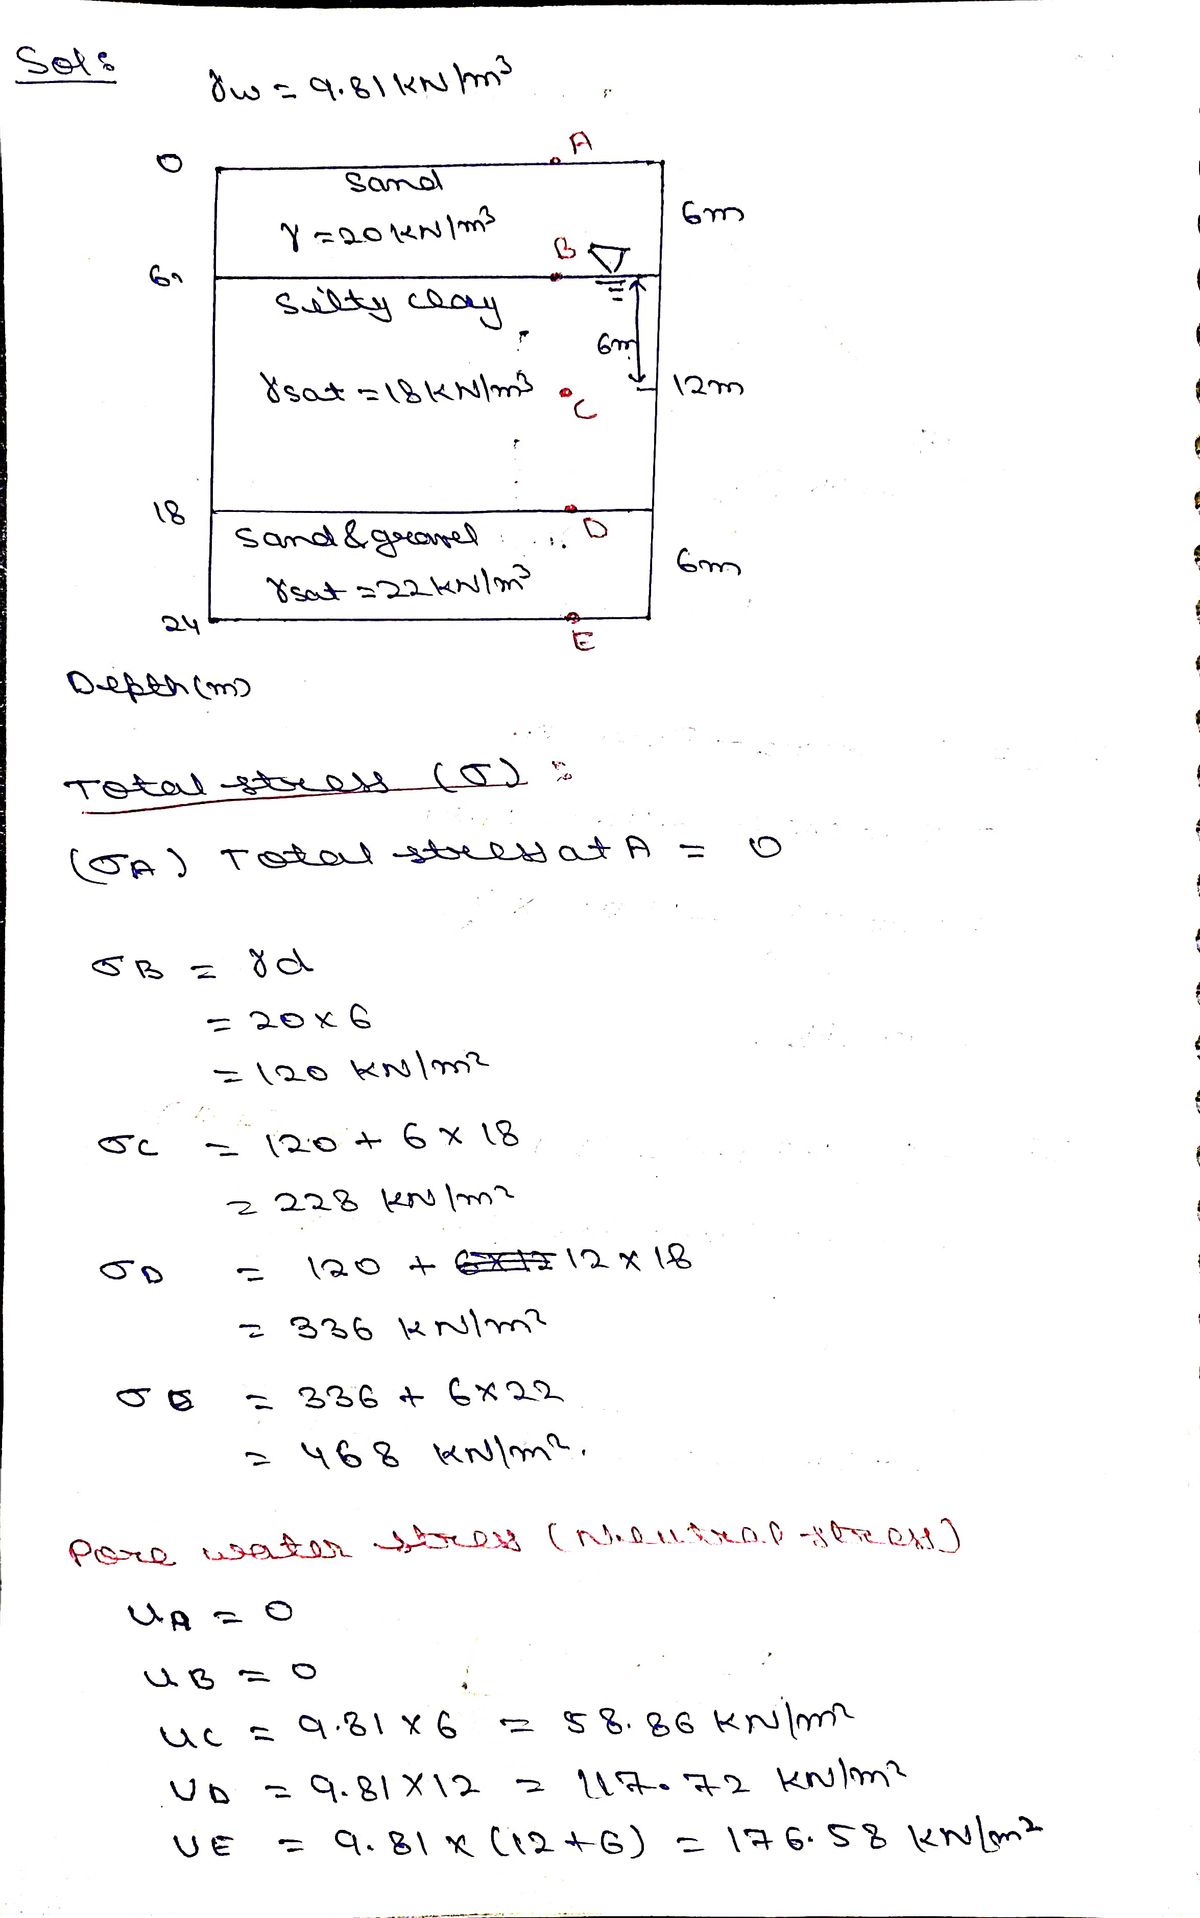 Sol:
γw = 9.81 KN/m³
A
0
Sand
6m
γ = 20 KN/m³
B
6
Silty clay
6m
γsat = 18 KN/m³
C
12m
18
D
Sand & gravel
6m
γsat = 22 KN/m³
24
E
Depth (m)
Total stress (σ) :
(σA) Total stress at A = 0
σB = γd
= 20 × 6
= 120 KN/m²
σC = 120 + 6 × 18
= 228 KN/m²
σD = 120 + 12 × 18
= 336 KN/m²
σE = 336 + 6×22
= 468 KN/m².
Pore water stress (Neutral stress)
UA = 0
UB = 0
UC = 9.81 × 6 = 58.86 KN/m²
UD = 9.81 × 12 = 117.72 KN/m²
UE = 9.81 × (12+6) = 176.58 KN/m²